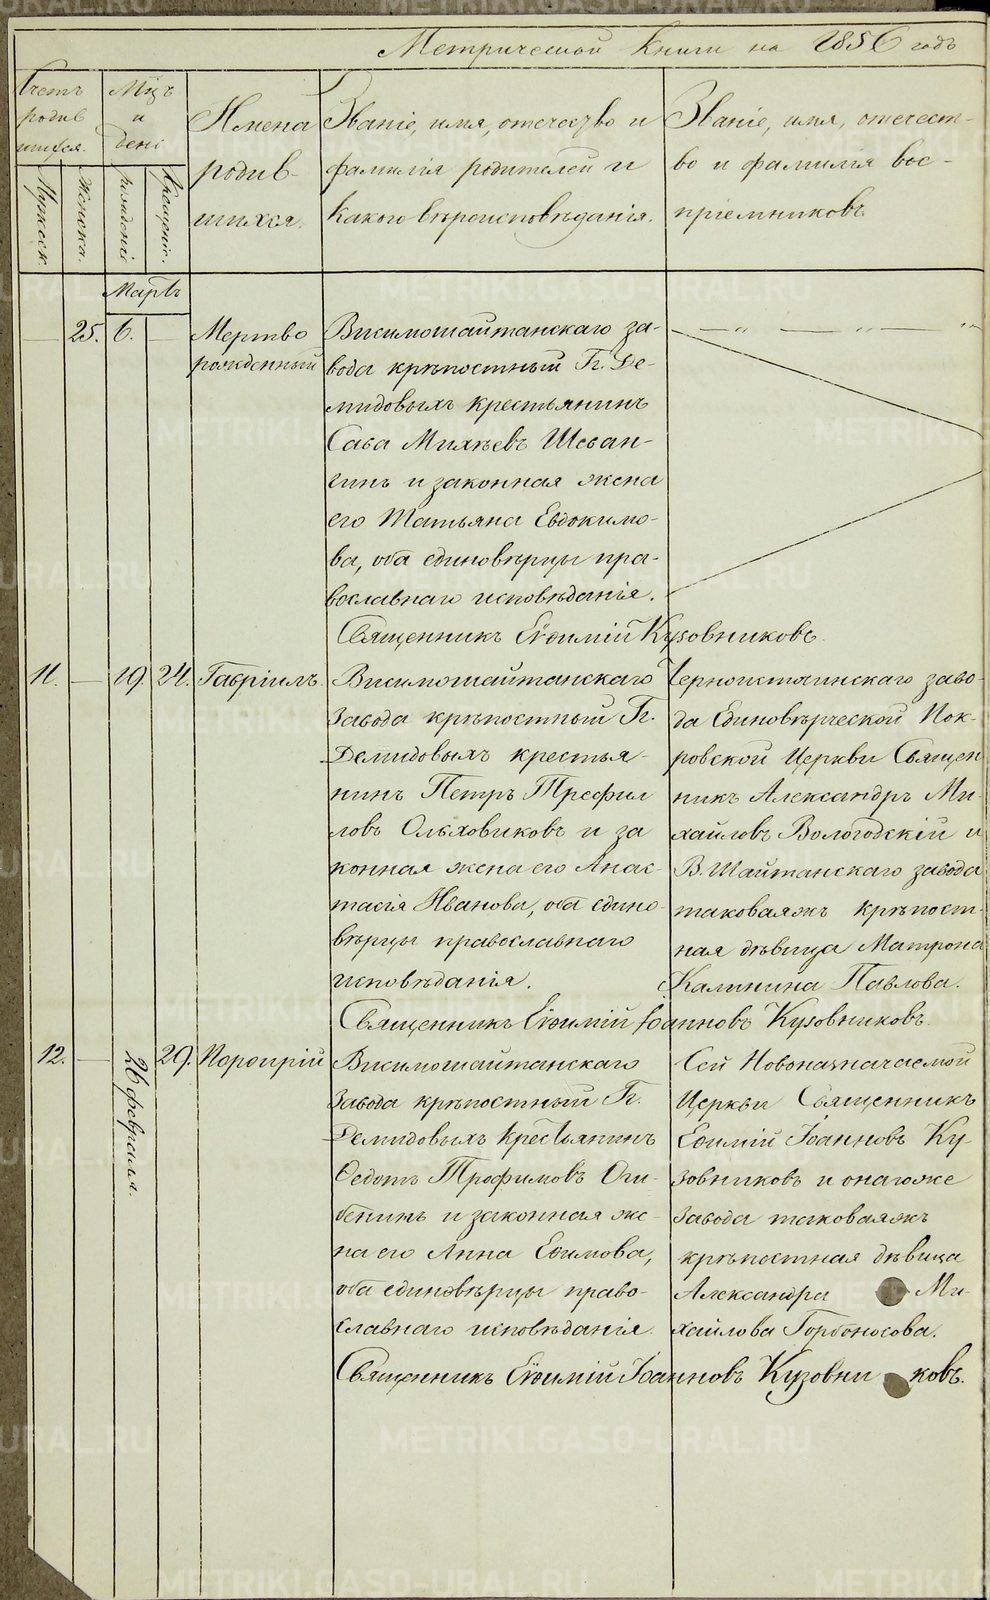 Метрической книги на 1856 годъ
Счетъ
родив
шихся.
Мужеск.
Женска.
Мцъ
и
день
рожденiе
Крещенiе.
Имена
родив-
шихся.
Званiе, имя, отечество и
фамилiя родителей и
какого вѣроисповѣданiя.
Званiе, имя, отечест-
во и фамилiя вос-
прiемниковъ
Мартъ
25. 6.
Мертво
рожденный
Висимошайтанскаго за-
вода крѣпостный Гг. Де-
мидовыхъ крестьянинъ
Сава Михѣевъ Шван-
гинъ и законная жена
его Татьяна Евдокимо-
ва, оба единовѣрцы пра-
вославнаго исповѣданiя.
Священникъ Евѳимiй Кузовниковъ.
11. 19. 24. Гаврiилъ
Висимошайтанскаго
Завода крѣпостный Гг.
Демидовыхъ крестья-
нинъ Петръ Трефил
ловъ Ольховиковъ и за
конная жена его Анас-
тасiя Иванова, оба едино-
вѣрцы православнаго
исповѣданiя.
Черноисточинскаго заво-
да Единовѣрческой Пок-
ровской Церкви Священ
никъ Александръ Ми-
хайловъ Вологодскiй и
В. Шайтанскаго завода
таковаяжъ крѣпост-
ная дѣвица Матрона
Калинина Павлова.
Священникъ Евѳимiй Iоанновъ Кузовниковъ.
12. 26 февраля. 29. Порфирiй
Висимошайтанскаго
Завода крѣпостный Гг.
Демидовыхъ Крестьянинъ
Ѳедотъ Трофимовъ Оги-
бенинъ и законная же-
на его Анна Ефимова,
оба единовѣрцы право-
славнаго исповѣданiя.
Сей Новоназначаемой
Церкви Священникъ
Евѳимiй Iоанновъ Ку-
зовниковъ и онагоже
Завода таковаяжъ
крѣпостная дѣвица
Александра Ми-
хайлова Горбоносова.
Священникъ Евѳимiй Iоанновъ Кузовни ковъ.
METRIKI.GASO-URAL.RU